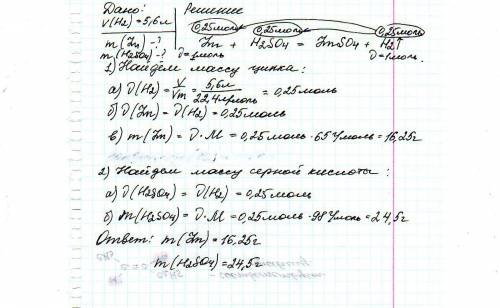 Дано: Решение
V(H₂)=5,6л 0,25моль 0,25моль 0,25моль
m(Zn)-? Zn + H₂SO₄ = ZnSO₄ + H₂↑
m(H₂SO₄)-? ν=1моль ν=1моль.
1) Найдём массу цинка:
а) ν(H₂) = V/Vm = 5,6л/22,4л/моль = 0,25моль
б) ν(Zn) = ν(H₂) = 0,25моль
в) m(Zn) = ν·M = 0,25моль·65г/моль = 16,25г
2) Найдём массу серной кислоты:
а) ν(H₂SO₄) = ν(H₂) = 0,25моль
б) m(H₂SO₄) = ν·M = 0,25моль·98г/моль = 24,5г
Ответ: m(Zn) = 16,25г
m(H₂SO₄) = 24,5г